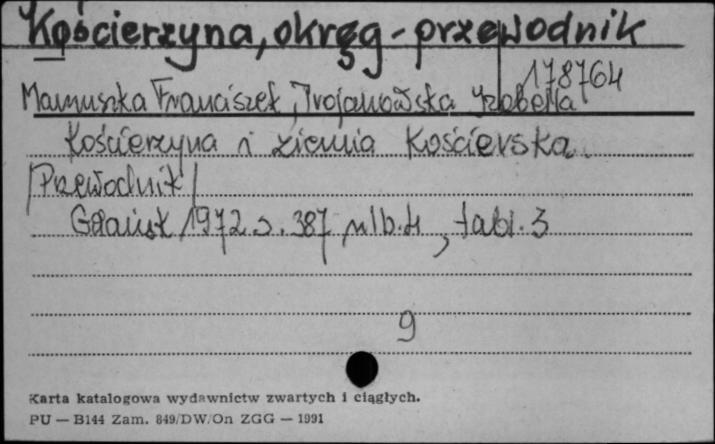 Kościerzyna, okręg - przewodnik
178764
Mamuszka Franciszek, Trojanowska Izabella
Kościerzyna i ziemia Kościerska.
/Przewodnik/
Gdańsk 1972 s. 387 nlb. 4, tabl. 3
9
Karta katalogowa wydawnictw zwartych i ciągłych.
PU — B144 Zam. 849/DW/On ZGG — 1991